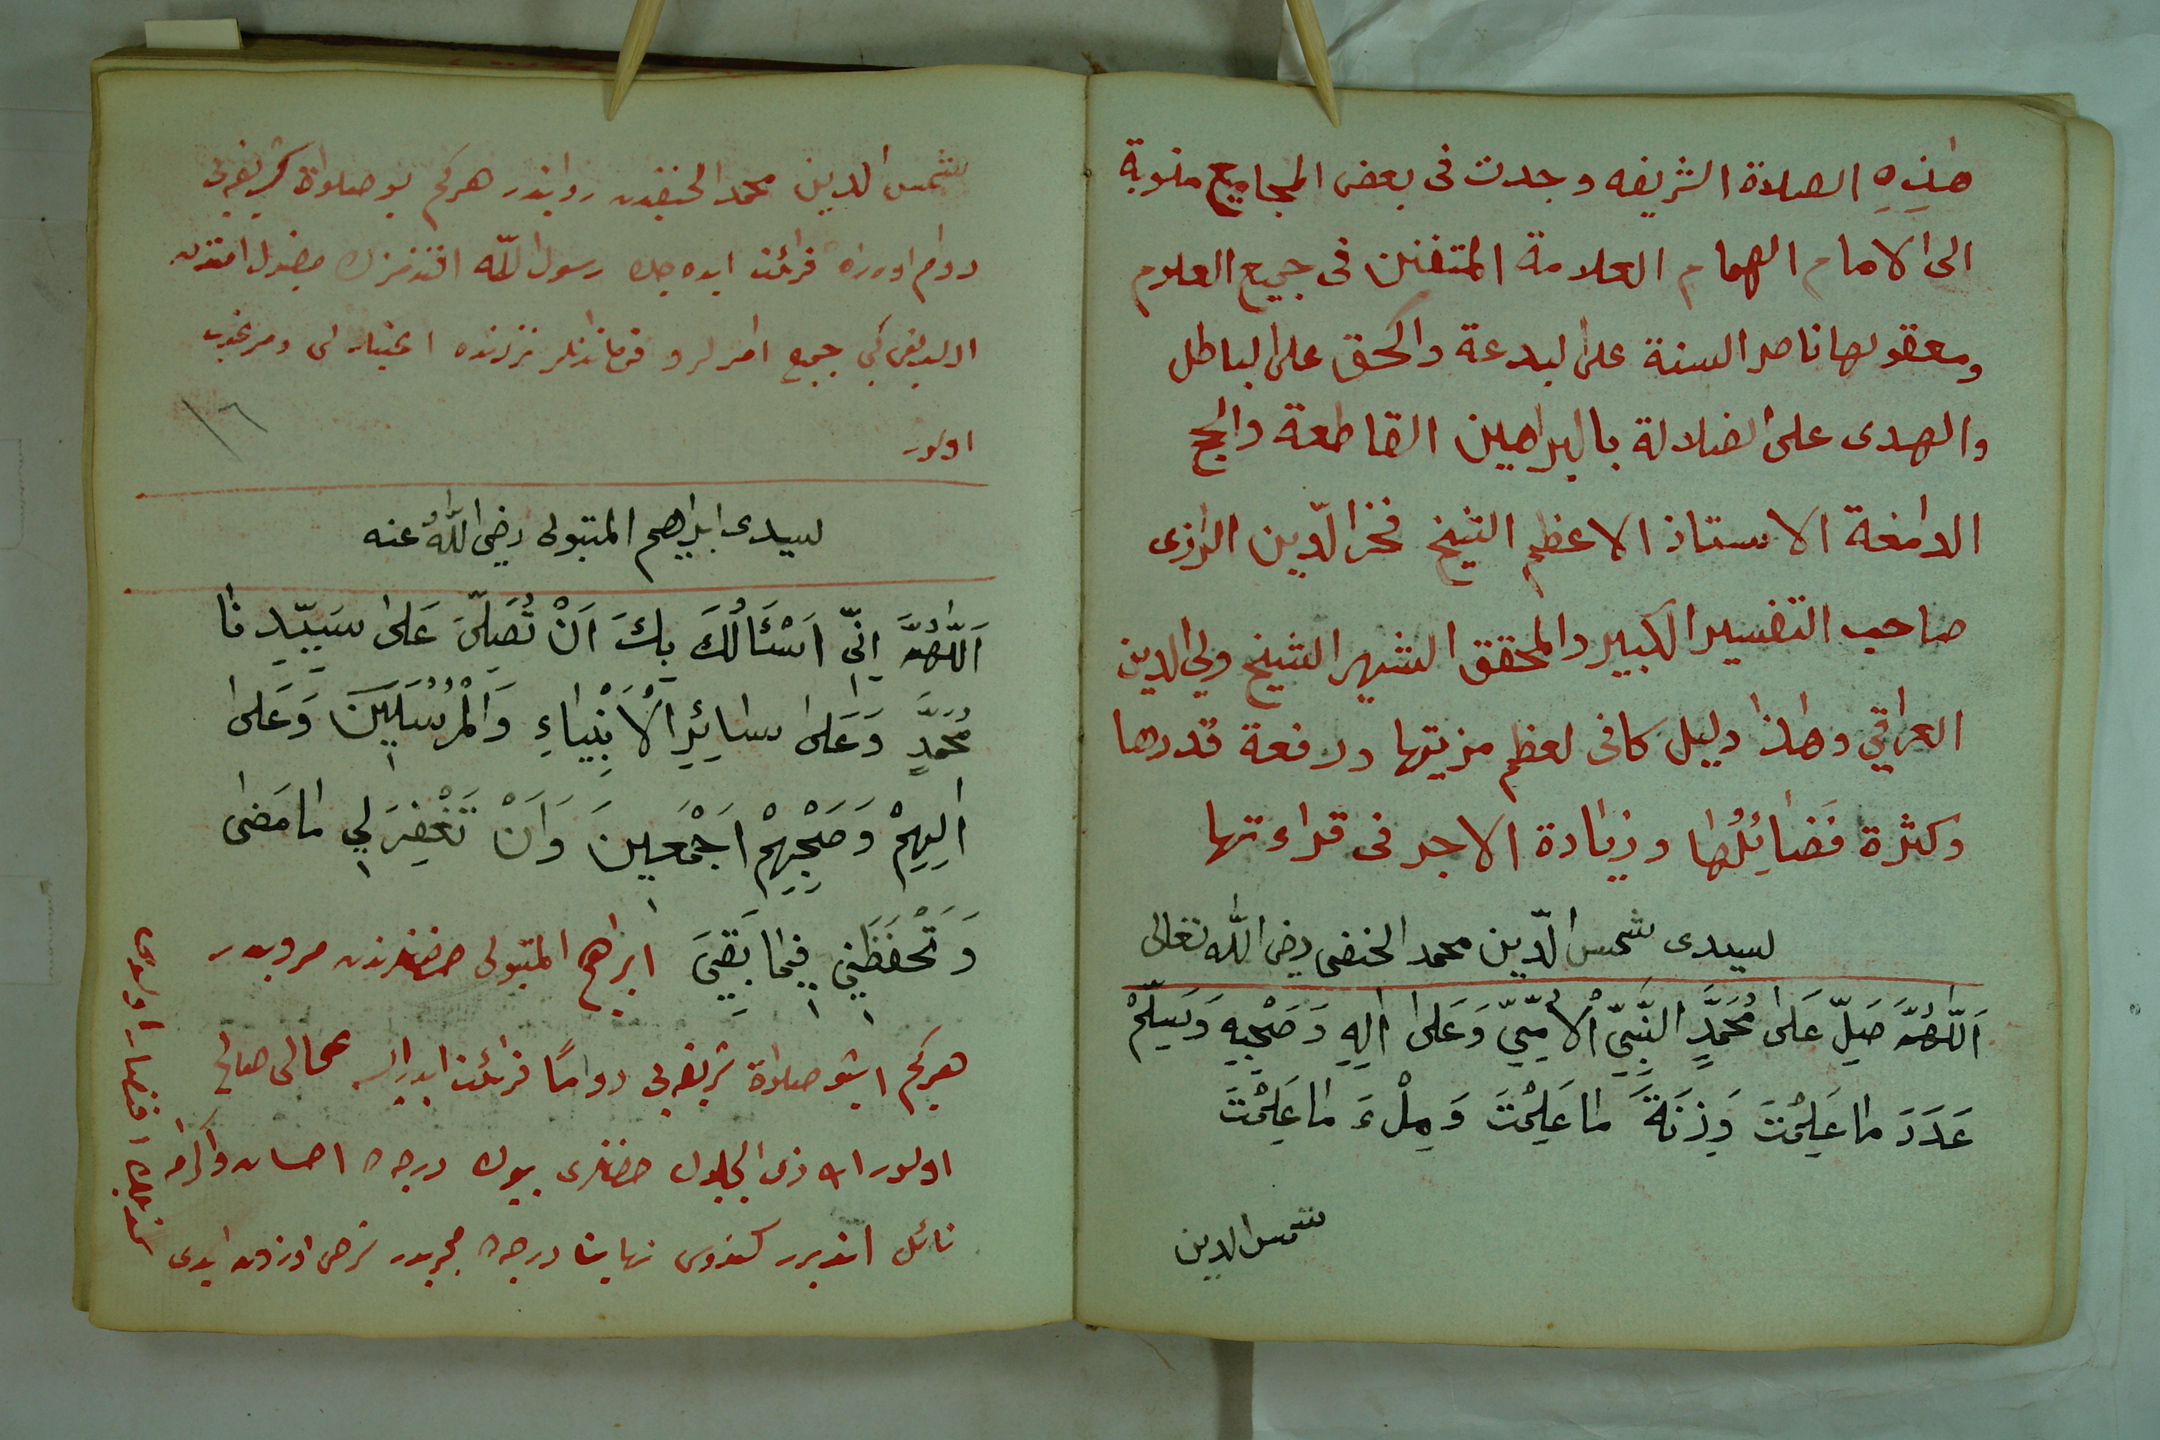 هٰذِهِ الصلاة الشريفه وجدت فى بعض المجاميع منوبة
الى الامام الهمام العلامة المتفنن فى جميع العلوم
ومعقولها ناصر السنة على البدعة والحق على الباطل
والهدى على الضلالة بالبراهين القاطعة والحجج
الدامغة الاستاذ الاعظم الشيخ فخر الدّين الرازى
صاحب التفسير الكبير والمحقق الشهير الشيخ ولي الدين
العراقي وهٰذا دليل كافى لعظم مزيتها ورفعة قدرها
وكثرة فَضَائِلُها وزيادة الاجر فى قراءتها
لسيدى شمس الدّين محمد الحنفى رضى اللّٰه تعالى
اَللّٰهُمَّ صَلِّ عَلىٰ مُحَمَّدٍ النَّبِيِّ الْاُمِّيِّ وَعَلىٰ اٰلِهِ وَصَحْبِهِ وَسَلِّمْ
عَدَدَ مَا عَلِمْتَ وَزِنَةَ مَا عَلِمْتَ وَمِلْءَ مَا عَلِمْتَ
شمس الدين
شمس الدين محمد الحنفيدن روايتدر هركم بو صلوة شريفه يى
دوام اوزره قرائت ايده جك رسول اللّٰه افندمزك
كبى جميع امرلر و نزدنده
اولور
١٦
لسيدى ابراهيم المتبولى رضى اللّٰهُ عنه
اَللّٰهُمَّ اِنِّي اَسْئَالُكَ بِكَ اَنْ تُصَلِّىَ عَلىٰ سَيِّدِنَا
مُحَمَّدٍ وَعَلىٰ سَائِرِ الْاَنْبِيَاءِ وَالْمُرْسَلِيَنَ وَعَلىٰ
اٰلِهِمْ وَصَحْبِهِمْ اَجْمَعِينَ وَاَنْ تَغْفِرَ لِي مَا مَضىٰ
وَتَحْفَظَنِي فِيمَا بَقِيَ ابراهيم المتبولى حضرتلرندن مرويدر
هركم اشبو صلاة شريفه يى دوامًا قرائت ايدر ايسه صالح
اولور الله ذى الجلال حضرتلرى بيوك درجه احسان واكرامه
نائل ايدر نهايت درجه مجربدر اوزون ايدى